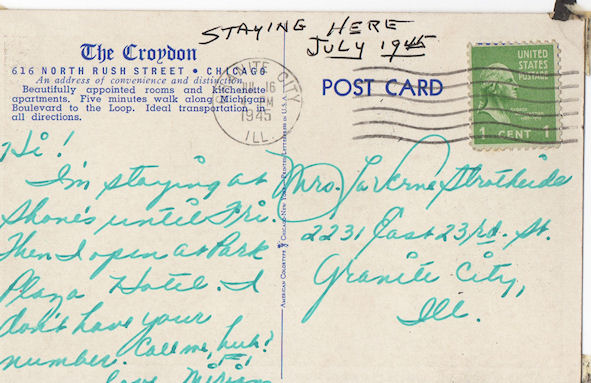 STAYING HERE
JULY 1945
The Croydon
616 NORTH RUSH STREET • CHICAGO
An address of convenience and distinction.
Beautifully appointed rooms and kitchenette
apartments. Five minutes walk along Michigan
Boulevard to the Loop. Ideal transportation in
all directions.
GRANITE CITY
16
1945
ILL.
POST CARD
UNITED
STATES
POSTAGE
1 CENT 1
Hi!
I'm staying at
Shone's until Fri.
Then I open at Park
Plaza Hotel. I
don't have your
number. Call me, huh?
Love Miriam
Mrs. LaVerne Strotheide
2231 East 23rd. St.
Granite City,
Ill.
AMERICAN COLORTYPE CHICAGO-NEW YORK
U.S.A.